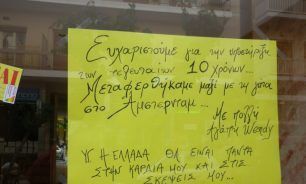 Ευχαριστούμε για την υποστήριξη
των τελευταίων 10 χρόνων...
Μεταφερθήκαμε μαζί με τη
στο Άμστερνταμ...
Με πολλή
Αγάπη Wendy
Υ.Γ Η ΕΛΛΑΔΑ ΘΑ ΕΙΝΑΙ ΠΑΝΤΑ
ΣΤΗΝ ΚΑΡΔΙΑ ΜΟΥ ΚΑΙ ΣΤΙΣ
ΣΚΕΨΕΙΣ ΜΟΥ...